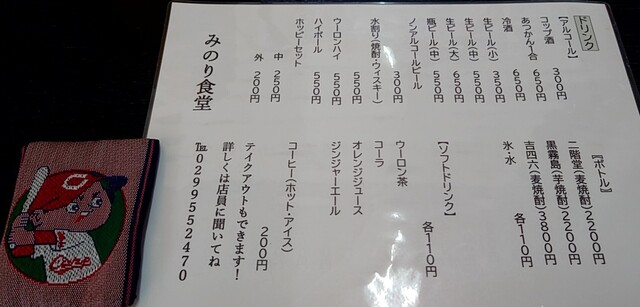 ドリンク
【アルコール】
コップ酒 300円
あつかん1合 650円
冷酒 650円
生ビール(小) 350円
生ビール(中) 550円
生ビール(大) 650円
瓶ビール(中) 550円
ノンアルコールビール 300円
水割り(焼酎・ウィスキー) 550円
ウーロンハイ 550円
ハイボール 550円
ホッピーセット
中 250円
外 200円
みのり食堂
『ボトル』
二階堂(麦焼酎) 2200円
黒霧島(芋焼酎) 2200円
吉四六(麦焼酎) 3800円
氷・水 各110円
【ソフトドリンク】 各110円
ウーロン茶
コーラ
オレンジジュース
ジンジャーエール
コーヒー(ホット・アイス) 200円
テイクアウトもできます!
詳しくは店員に聞いてね
℡0299552470
C
Carp